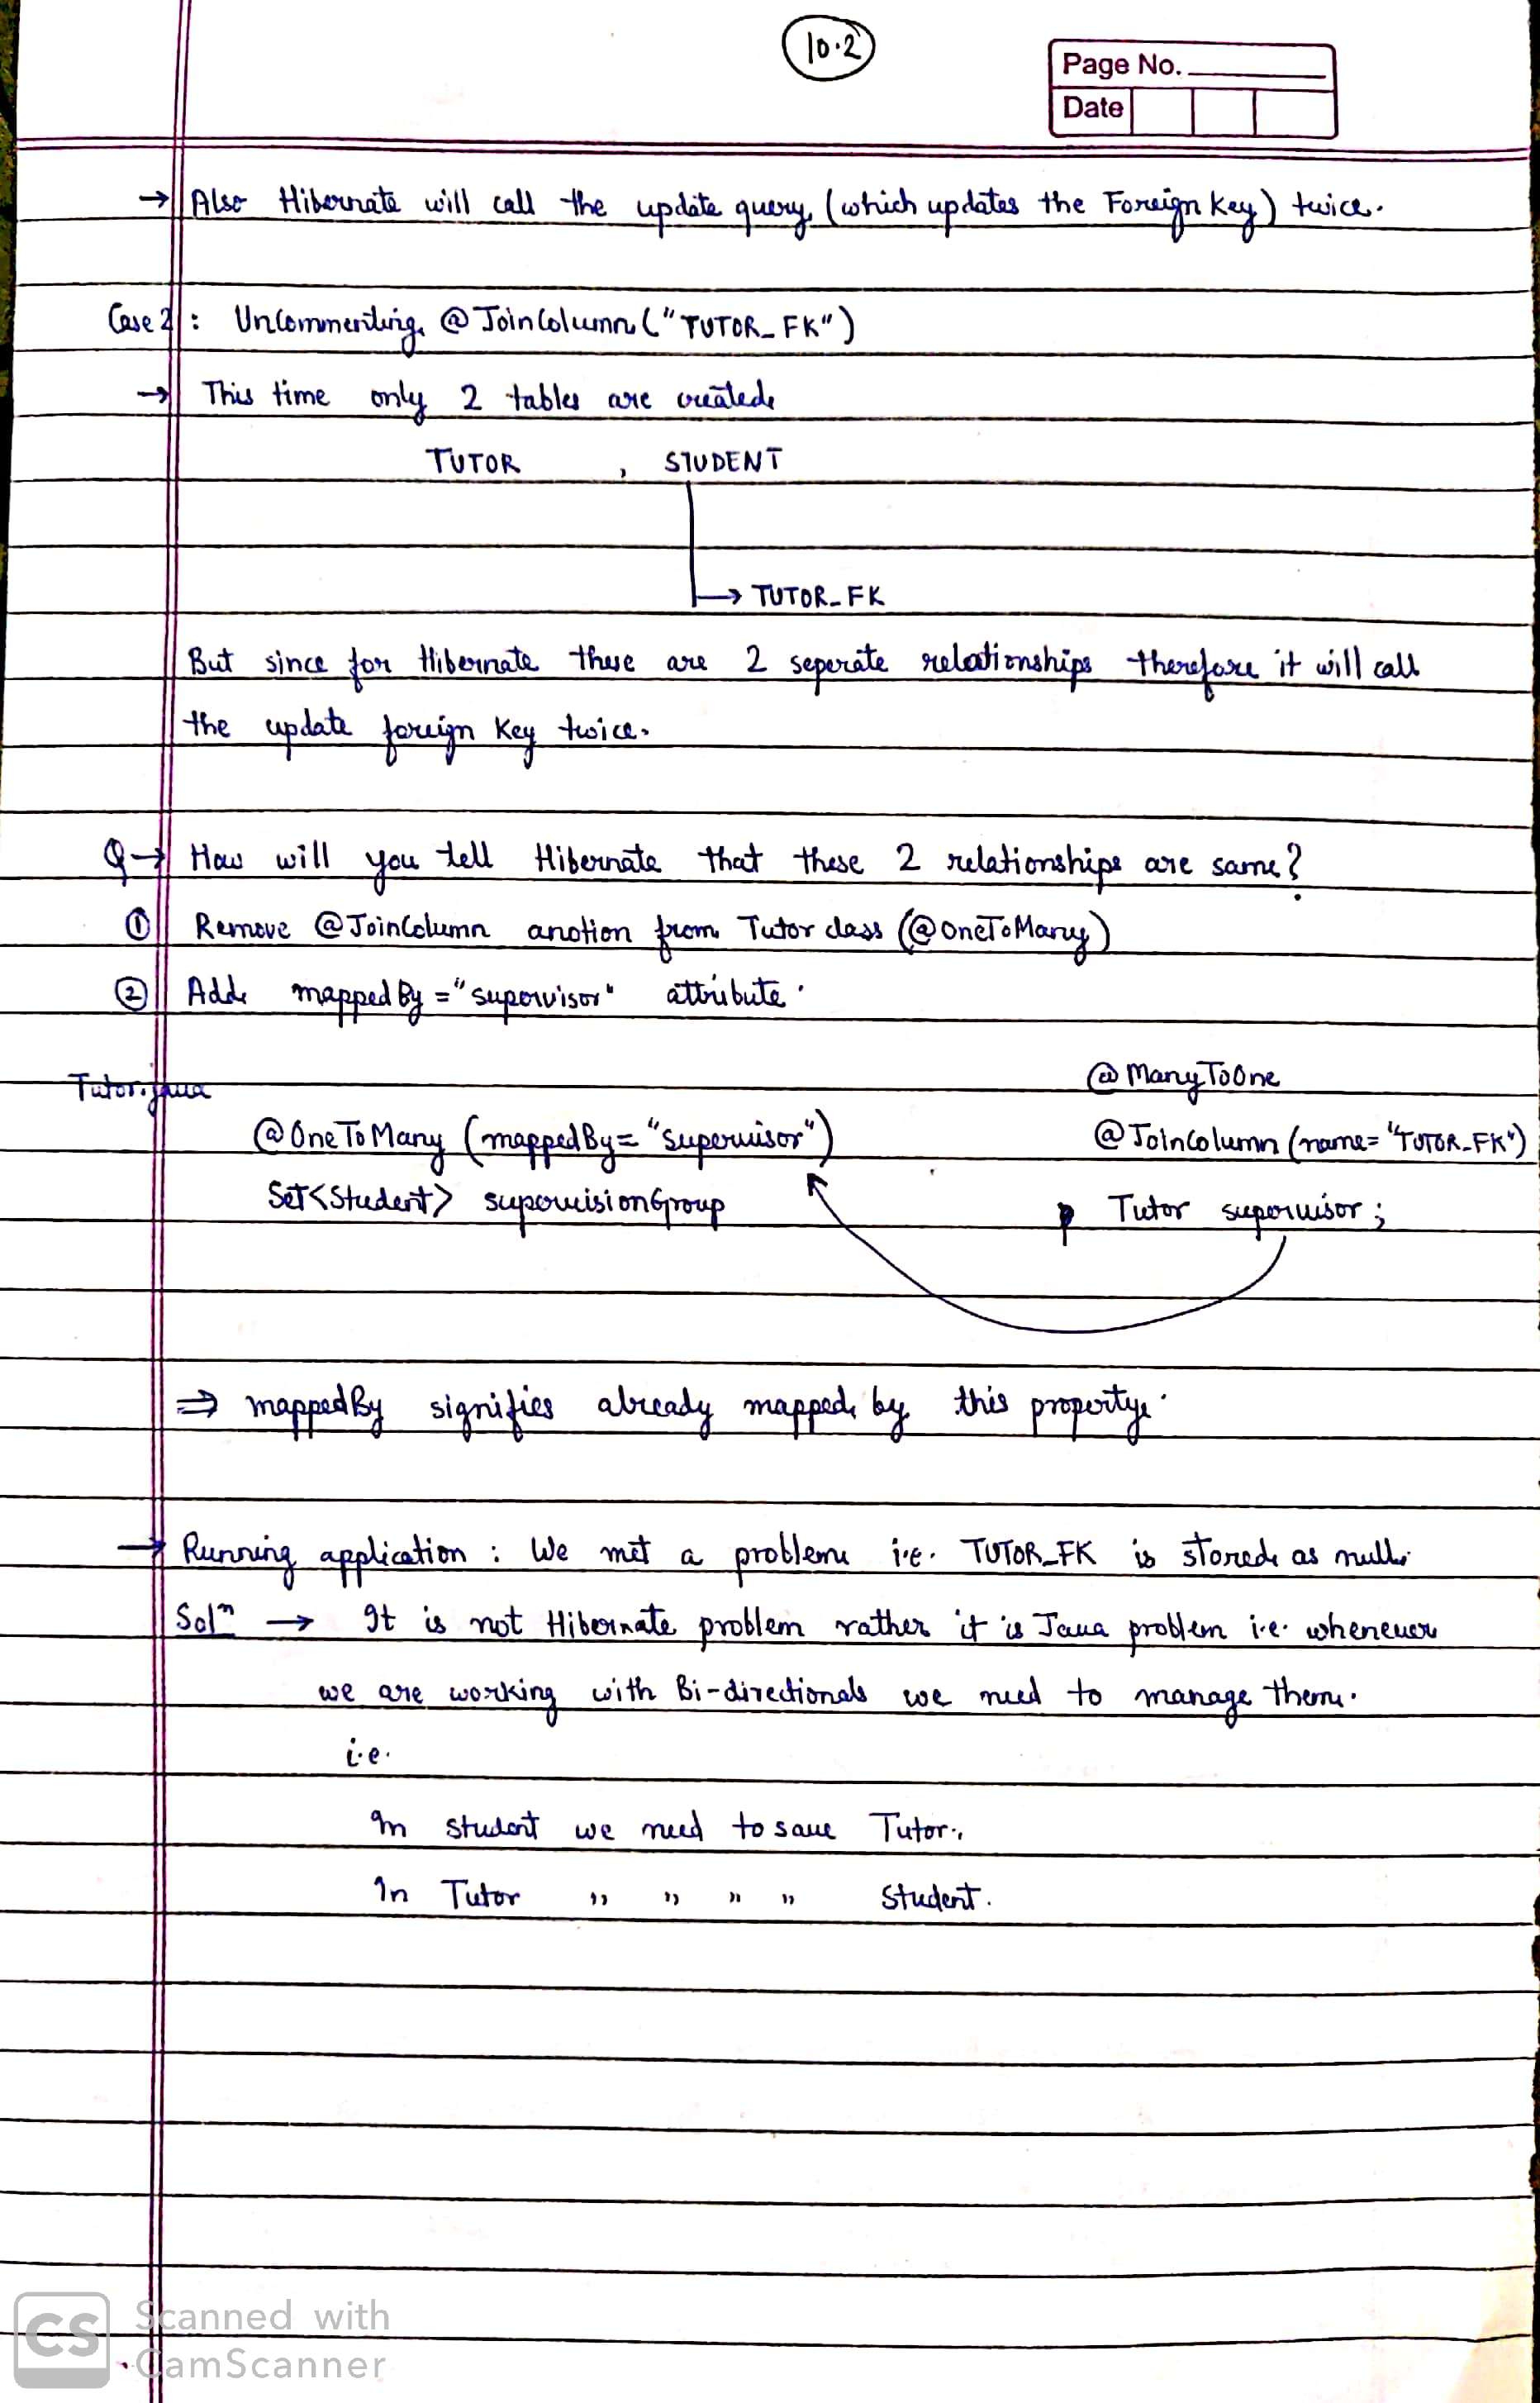 10.2
Page No.
Date
→ Also Hibernate will call the update query (which updates the Foreign Key) twice.
Case 2 : UnCommenting @JoinColumn("TUTOR_FK")
→ This time only 2 tables are created
TUTOR , STUDENT
→ TUTOR_FK
But since for Hibernate these are 2 seperate relationships therefore it will call
the update foreign Key twice.
Q→ How will you tell Hibernate that these 2 relationships are same?
① Remove @JoinColumn anotion from Tutor class (@OneToMany)
② Add mappedBy="supervisor" attribute.
@ManyToOne
Tutor.java
@OneToMany (mappedBy="supervisor") @JoinColumn (name="TUTOR_FK")
Set<Student> supervisionGroup Tutor supervisor;
⇒ mappedBy signifies already mapped by this property.
→ Running application : We met a problem i.e. TUTOR_FK is stored as null.
Solⁿ → It is not Hibernate problem rather it is Java problem i.e. whenever
we are working with Bi-directionals we need to manage them.
i.e.
In student we need to save Tutor.
In Tutor " " " " Student.
CS Scanned with
CamScanner